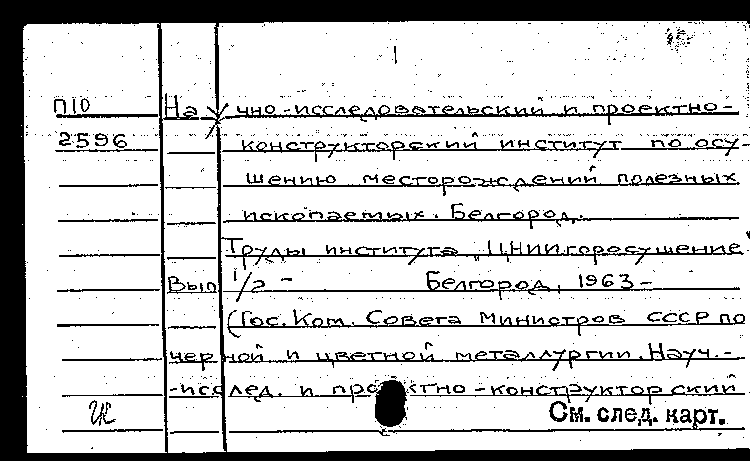 П10 Научно-исследовательский и проектно-
2596 конструкторский институт по осу-
шению месторождений полезных
ископаемых. Белгород.
Труды института „ЦНИИгоросушение"
Вып 1/2 - Белгород, 1963-
(Гос. Ком. Совета Министров СССР по
черной и цветной металлургии. Науч.-
-исслед. и проектно-конструкторский
См. след. карт.